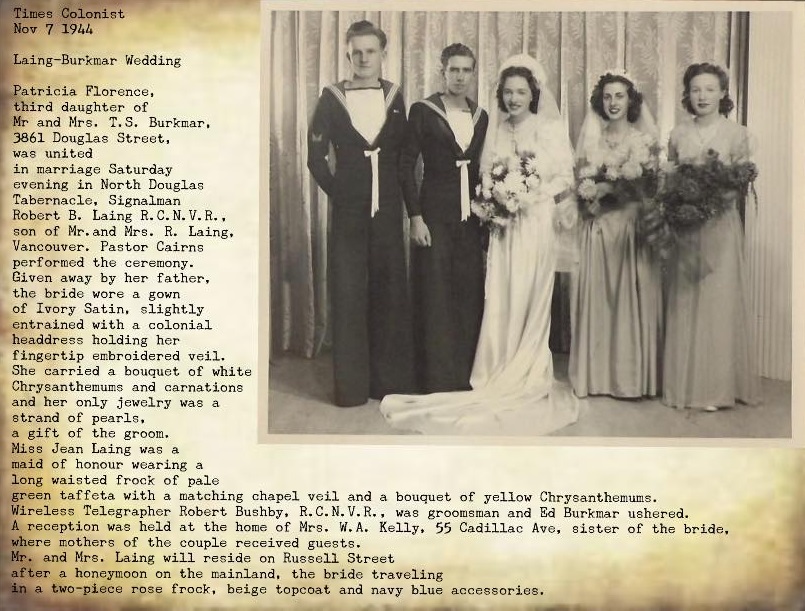 Times Colonist
Nov 7 1944
Laing-Burkmar Wedding
Patricia Florence,
third daughter of
Mr and Mrs. T.S. Burkmar,
3861 Douglas Street,
was united
in marriage Saturday
evening in North Douglas
Tabernacle, Signalman
Robert B. Laing R.C.N.V.R.,
son of Mr.and Mrs. R. Laing,
Vancouver. Pastor Cairns
performed the ceremony.
Given away by her father,
the bride wore a gown
of Ivory Satin, slightly
entrained with a colonial
headdress holding her
fingertip embroidered veil.
She carried a bouquet of white
Chrysanthemums and carnations
and her only jewelry was a
strand of pearls,
a gift of the groom.
Miss Jean Laing was a
maid of honour wearing a
long waisted frock of pale
green taffeta with a matching chapel veil and a bouquet of yellow Chrysanthemums.
Wireless Telegrapher Robert Bushby, R.C.N.V.R., was groomsman and Ed Burkmar ushered.
A reception was held at the home of Mrs. W.A. Kelly, 55 Cadillac Ave, sister of the bride,
where mothers of the couple received guests.
Mr. and Mrs. Laing will reside on Russell Street
after a honeymoon on the mainland, the bride traveling
in a two-piece rose frock, beige topcoat and navy blue accessories.